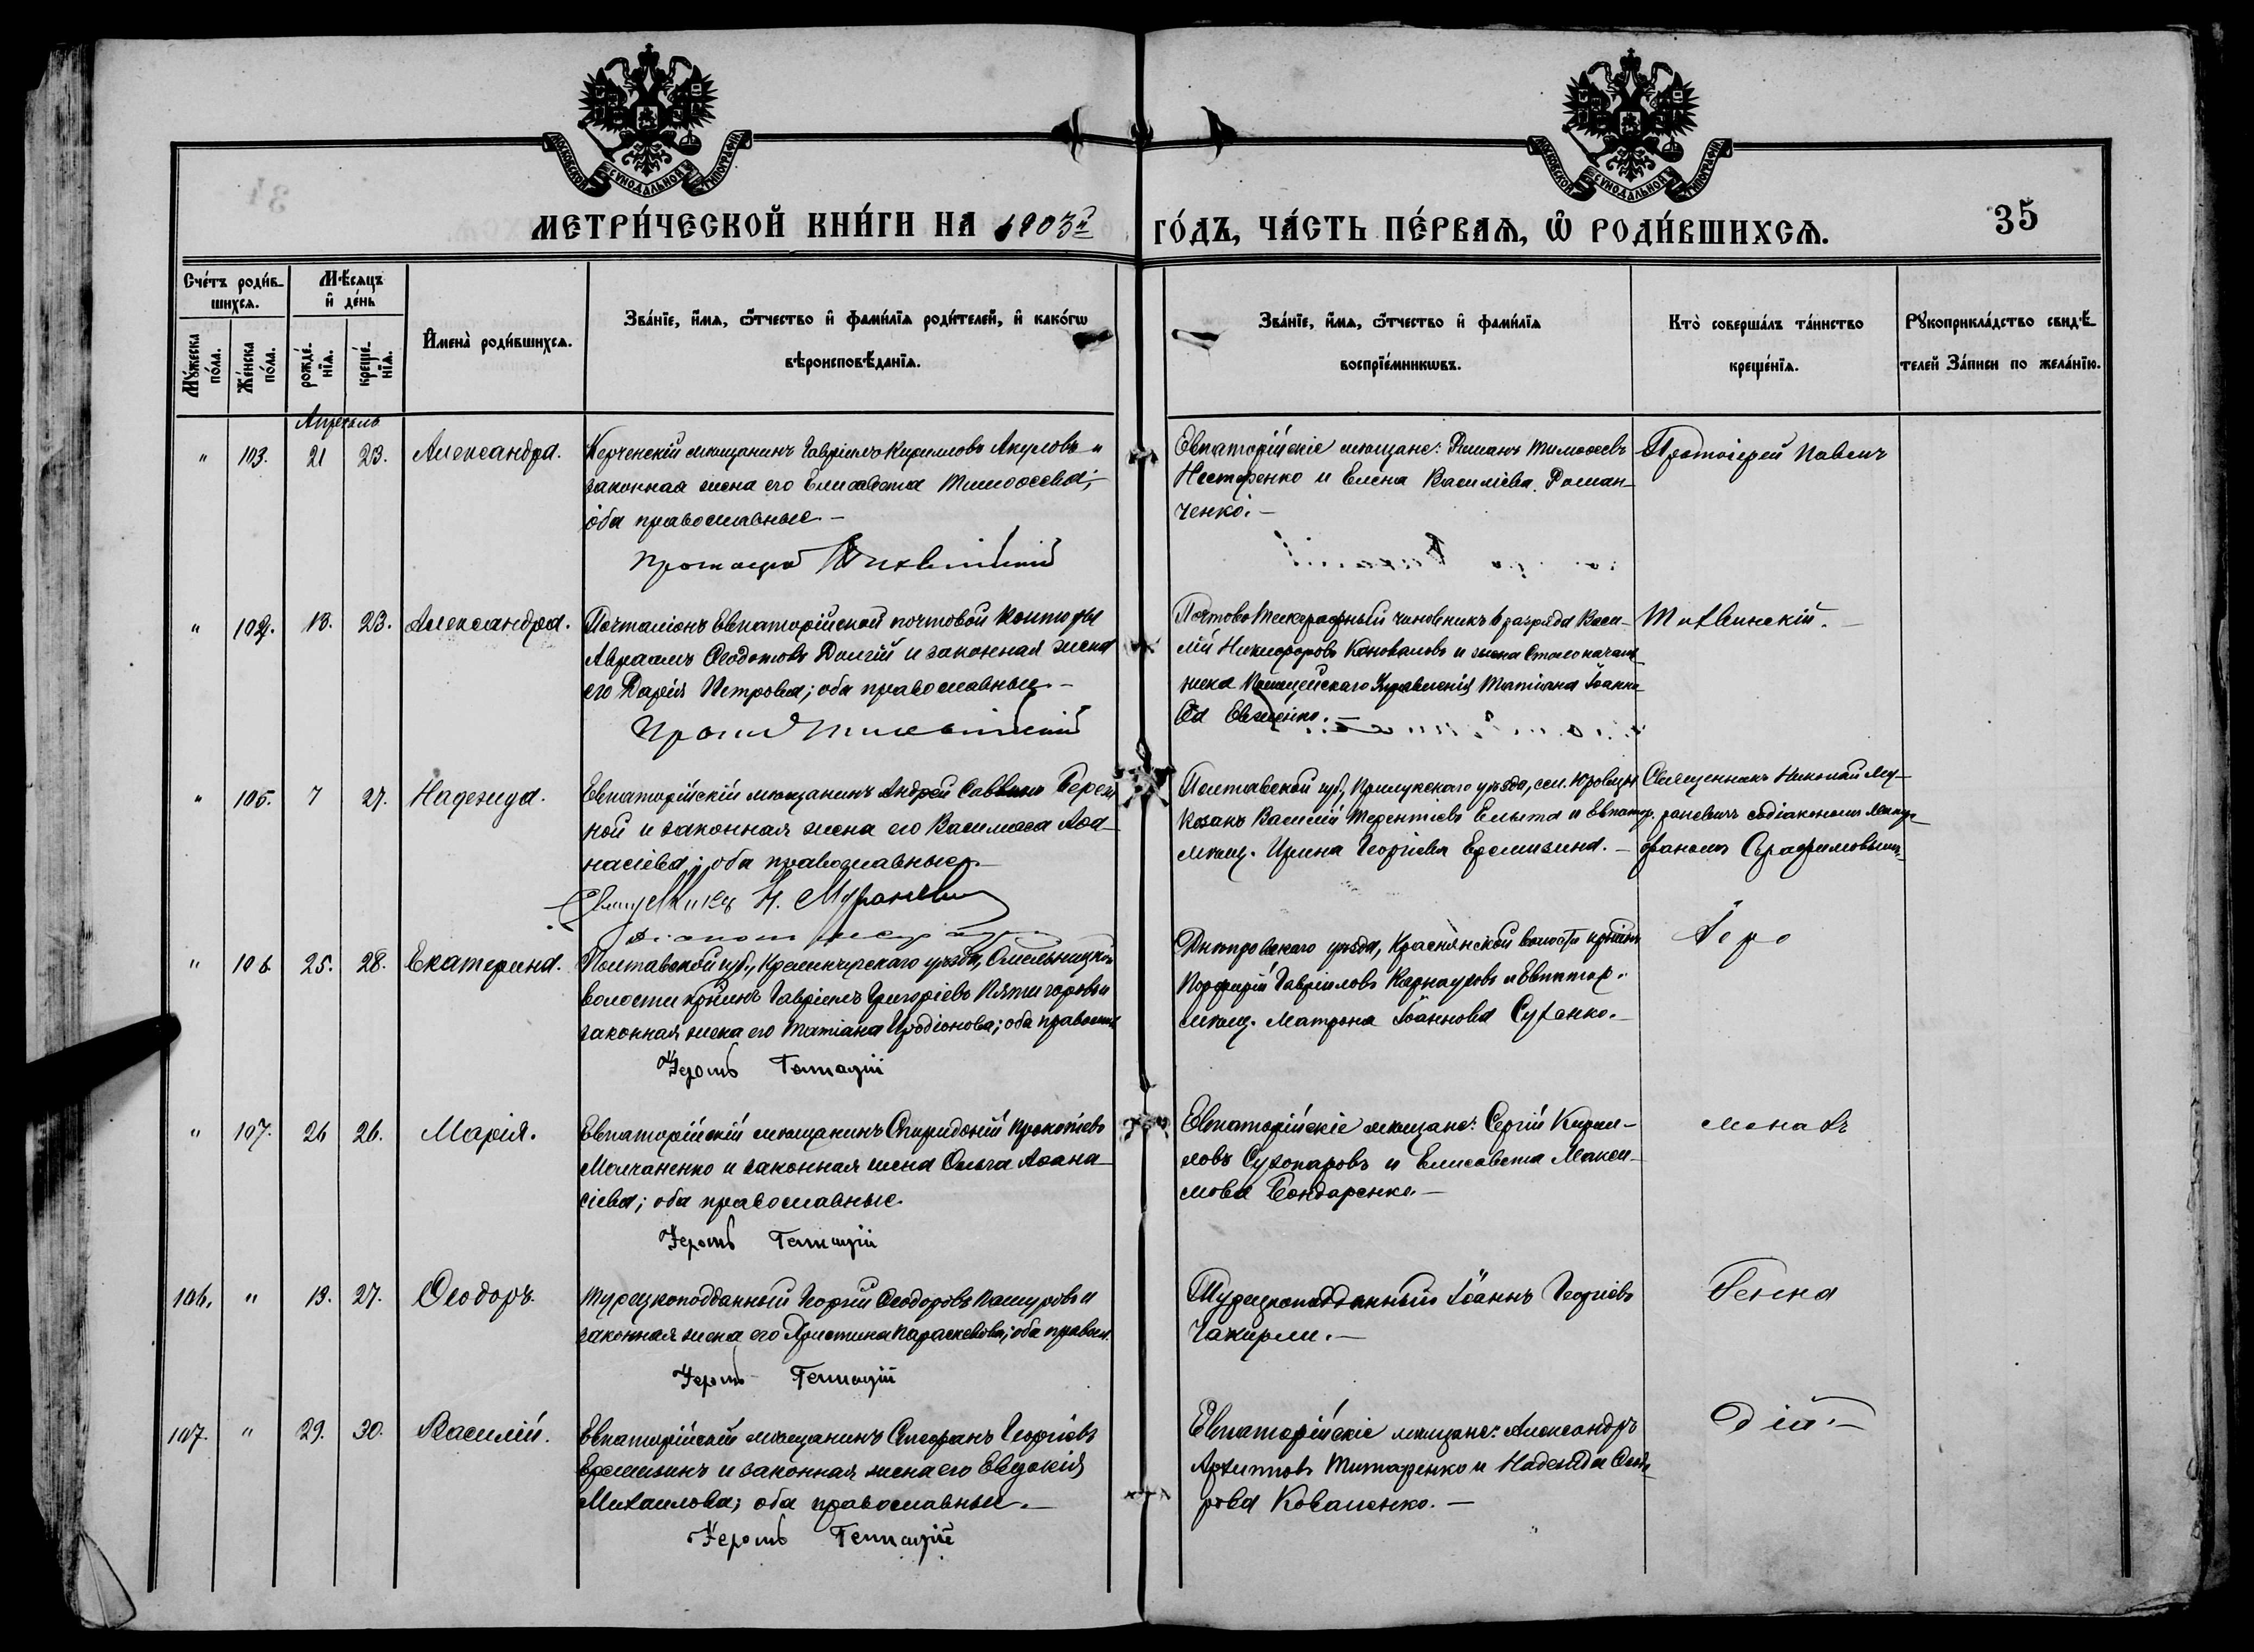 МОСКОВСКОЙ СѴНОДАЛЬНОЙ ТИПОГРАФІИ
МОСКОВСКОЙ СѴНОДАЛЬНОЙ ТИПОГРАФІИ
МЕТРИ́ЧЕСКОЙ КНИ́ГИ НА 1903й
ГО́ДЪ, ЧА́СТЬ ПЕ́РВАѦ, Ѽ РОДИ́ВШИХСѦ.
35
Сче́тъ роди́в-
шихсѧ.
Мѣ́сѧцъ
и҆ де́нь
Мꙋ́жеска
по́ла.
Же́нска
по́ла.
рожде́-
нїѧ.
креще́-
нїѧ.
И҆мена̀ роди́вшихсѧ.
Зва́нїе, и҆́мѧ, ѻ҆́тчество и҆ фами́лїѧ роди́телей, и҆ како́гѡ
вѣроисповѣ́данїѧ.
Зва́нїе, и҆́мѧ, ѻ҆́тчество и҆ фами́лїѧ
воспрїе́мникѡвъ.
Кто̀ соверша́лъ та́инство
креще́нїѧ.
Рꙋкоприкла́дство свидѣ́-
телей За́писи по жела́нїю.
Апрѣль
" 103. 21 23. Александра.
Керченскій мѣщанинъ Гавріилъ Кирилловъ Акуловъ и
законная жена его Елисавета Тимоѳеева;
оба православные.-
Евпаторійскіе мѣщане: Романъ Тимоѳеевъ
Нестеренко и Елена Василіева Роман-
ченко.-
Протоіерей Павелъ
" 104. 13. 23. Александра.
Почталіонъ Евпаторійской почтовой конторы
Авраамъ Ѳеодотовъ Долгій и законная жена
его Дарія Петрова; оба православные.-
Почтово Телеграфный чиновникъ 6 разряда Васи-
лій Никифоровъ Коноваловъ и жена Столоначаль-
ника Полицейскаго Управленія Татіана Іоанно-
ва
Тихвинскій.-
" 105. 7 27. Надежда.
Евпаторійскій мѣщанинъ Андрей Саввинъ Берез-
ной и законная жена его Василиса Аѳа-
насіева; оба православные.-
Священникъ Н. Мураневичъ
Полтавской губ., Прилукскаго уѣзда, сел.
козакъ Василій Терентіевъ и Евпатор.
мѣщ. Ирина Георгіева Еремизина.-
Священникъ Николай Му-
раневичъ содіакономъ
" 106. 25. 28. Екатерина.
Полтавской губ., Кременчугскаго уѣзда, Омельницкой
волости крестьян. Гавріилъ Григоріевъ Пятигоровъ и
законная жена его Татіана Иродіонова; оба правосл.
Іером. Геннадій
Днѣпровскаго уѣзда, Краснянской волости крестьян.
Порфирій Гавріиловъ Карнауховъ и Евпатор.
мѣщ. Матрона Іоаннова Сухенко.-
Іеро
" 107. 26 26. Марія.
Евпаторійскій мѣщанинъ Спиридоній Прокопіевъ
Молчаненко и законная жена Ольга Аѳана-
сіева; оба православные.
Іером. Геннадій
Евпаторійскіе мѣщане: Сергій Кирил-
ловъ Сухопаровъ и Елисавета Макси-
мова Бондаренко.-
монахъ
106. " 13. 27. Ѳеодоръ.
Турецкоподданный Георгій Ѳеодоровъ и
законная жена его Христина Параскевова; оба правосл.
Іером. Геннадій
Турецкоподданный Іоаннъ Георгіевъ
Чакирли.-
Генна
107. " 29. 30. Василій.
Евпаторійскій мѣщанинъ Стефанъ Георгіевъ
Еремизинъ и законная жена его Евдокія
Михаилова; оба православные.-
Іером. Геннадій
Евпаторійскіе мѣщане: Александръ
Архиповъ Титаренко и Надежда Ѳеодо-
рова Коваленко.-
дій.-